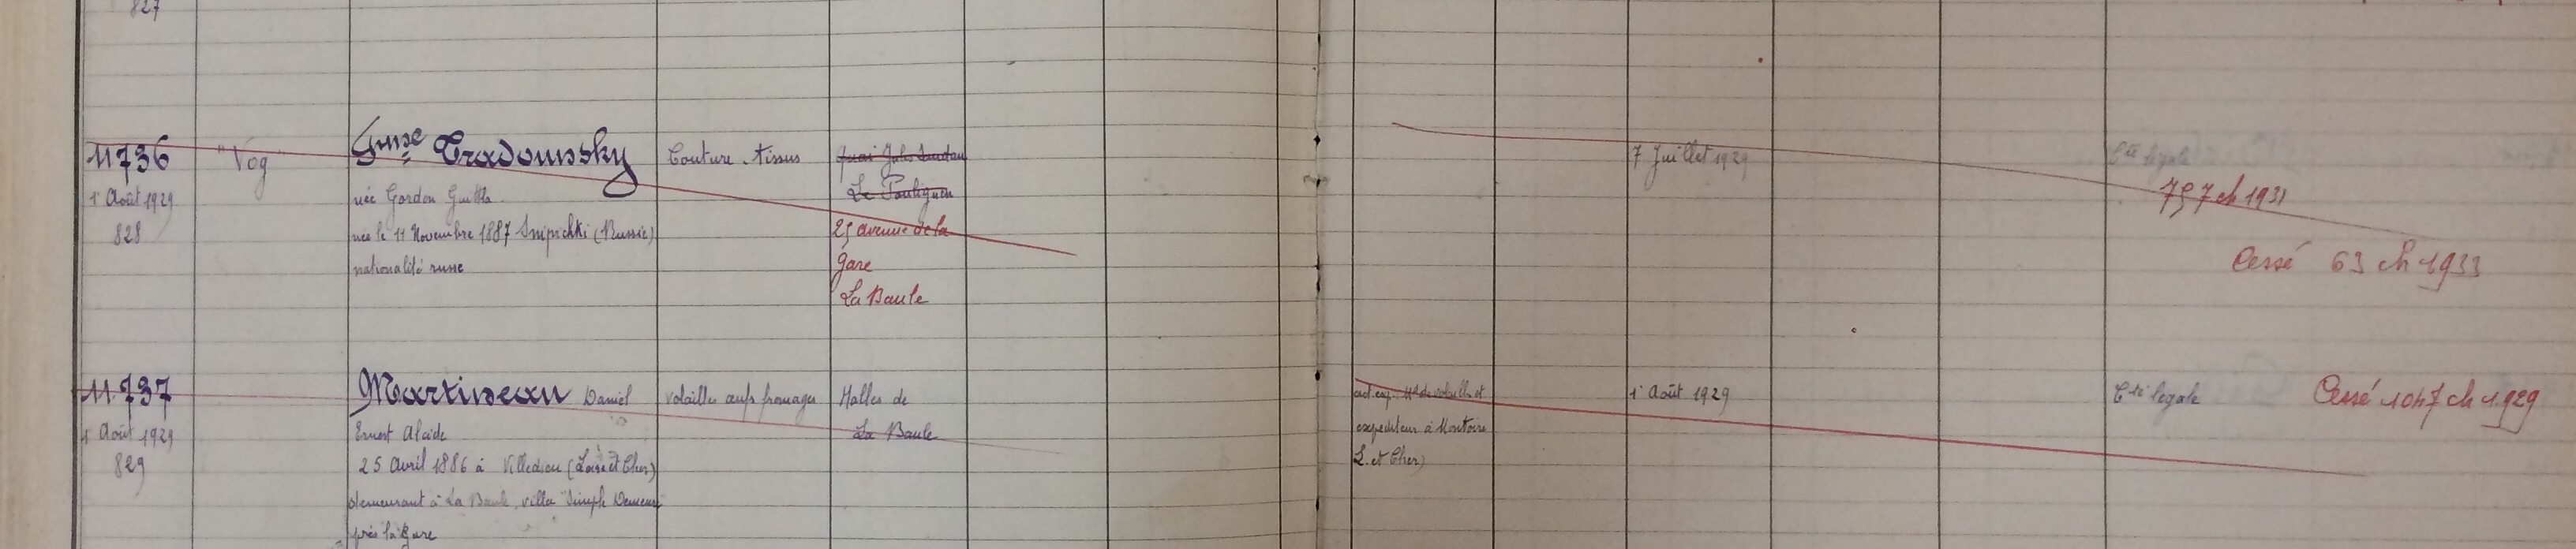 827
11736
1 Août 1929
828
"Vog"
Tradomsky
née Gordon Guittla
née le 11 Novembre 1887 Snipichki (Russie)
nationalité russe
Couture - tissus
quai Jules Sandeau
Le Pouliguen
25 avenue de la
gare
La Baule
7 Juillet 1929
Cté légale
757 ch 1931
Cessé 63 ch 1933
11.737
1 Août 1929
829
Martineau Daniel
Ernest Alcide
25 Avril 1886 à Villedieu (Loir et Cher)
demeurant à La Baule, villa "Simple Demeure"
près la Gare
volaille œufs fromages
Halles de
La Baule
expéditeur à Montoire
L. et Cher)
1 Août 1929
Cté légale
Cessé 1047 ch 1929